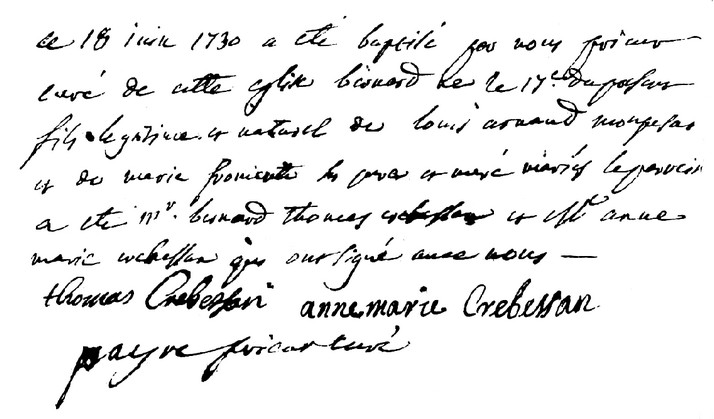 le 18 iuin 1730 a eté baptisé par nous prieur
curé de cette eglise bernard né le 17e du passé
fils legitime et naturel de louis arnaud monpesar
et de marie fromente les pere et meré mariés le parrein
a eté mr. bernard thomas crebessan et dlle anne
marie crebessan qui ont signé avec nous
thomas Crebessan anne marie Crebessan
payre prieur curé